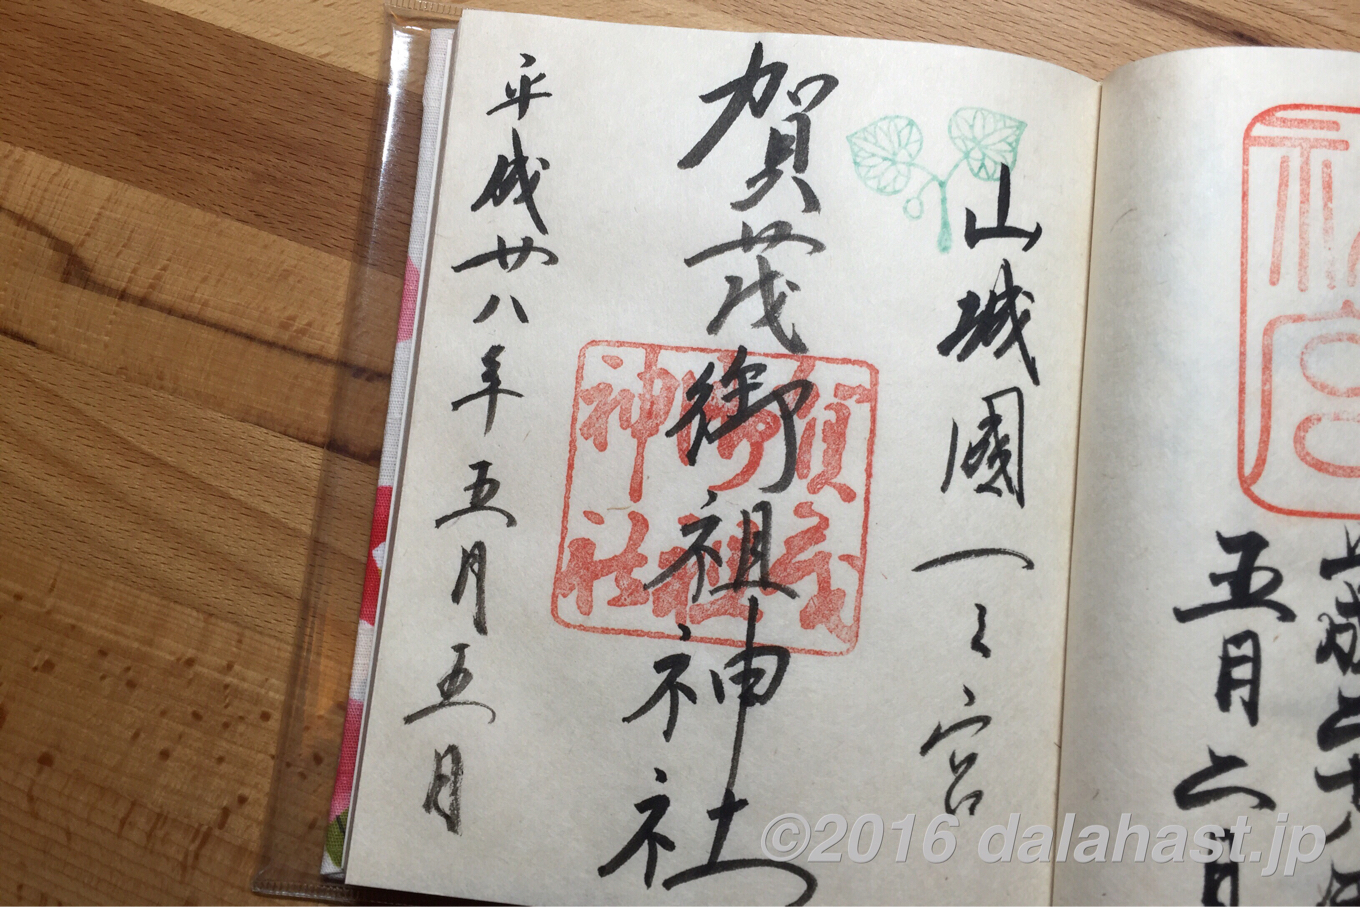 平成二十八年
五月六日
山城國一之宮
賀茂御祖神社
賀茂
御祖
神社
平成廿八年五月五日
©2016 dalahast.jp